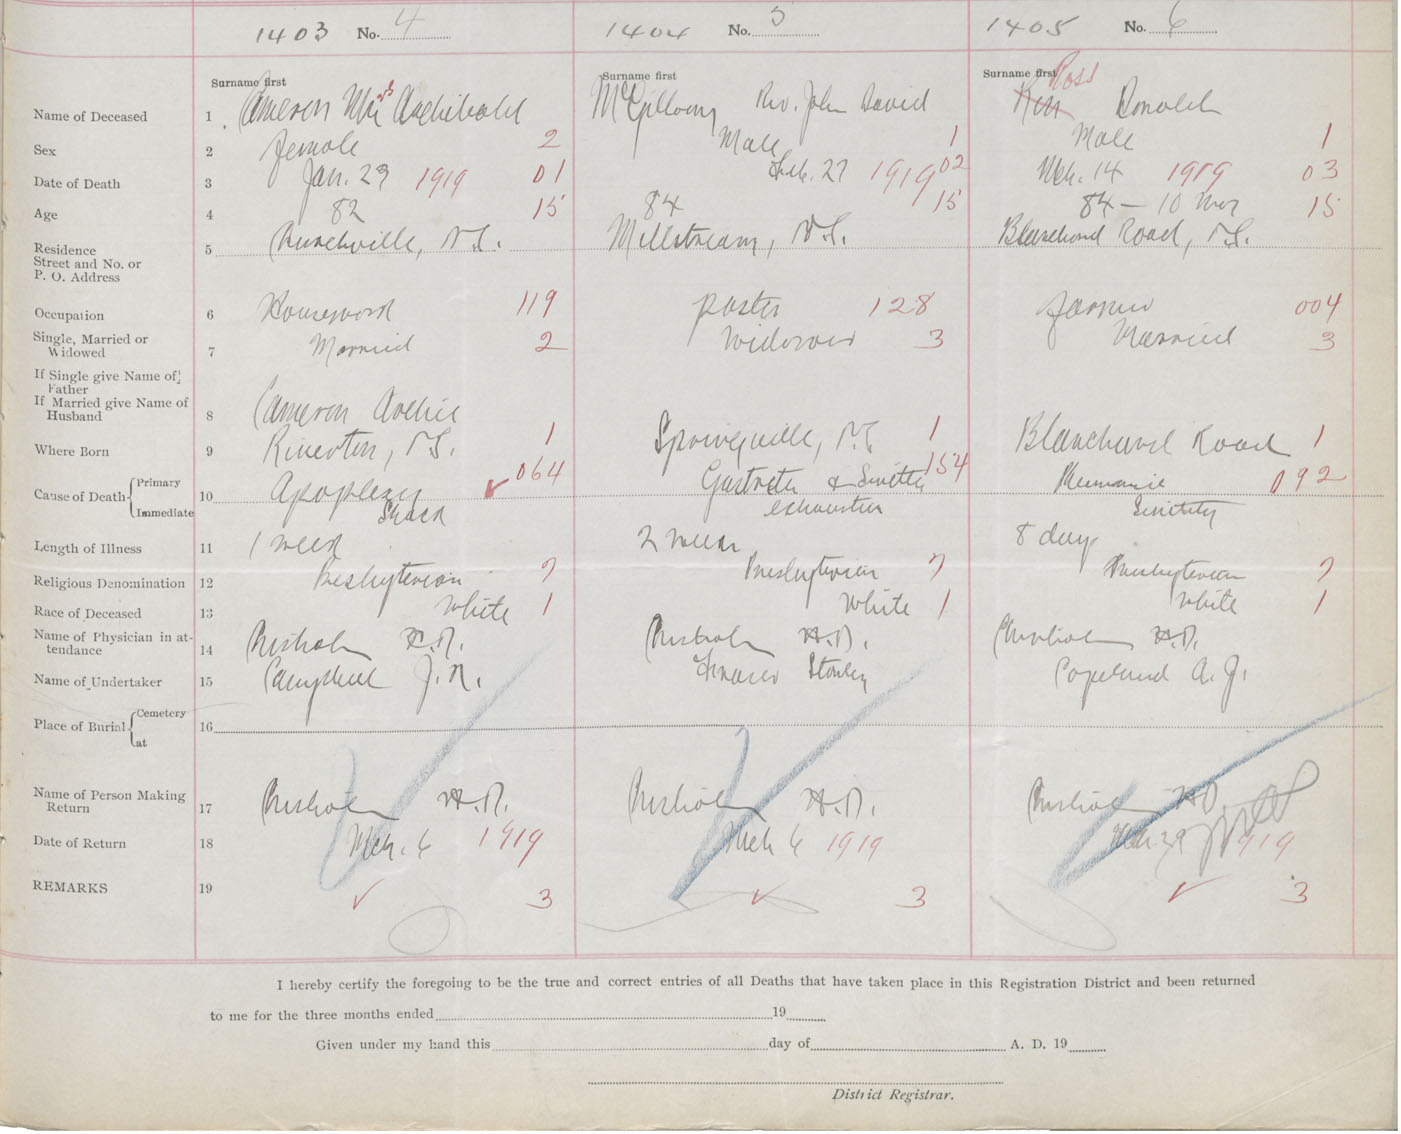 1403 No. 4 1404 No. 5 1405 No. 6
Surname first Surname first Surname first Ross
Name of Deceased 1 Cameron Mrs Archibald McGillvary Rev. John David Ross Donald
Sex 2 female 2 Male 1 Male 1
Date of Death 3 Jan. 29 1919 01 Feb. 27 1919 02 Mch. 14 1919 03
Age 4 82 15 84 15 84 — 10 mos 15
Residence
Street and No. or
P. O. Address
5 Churchville, N.S. Millstream, N.S. Blanchard Road, N.S.
Occupation 6 Housework 119 pastor 128 farmer 004
Single, Married or
Widowed 7 Married 2 Widower 3 Married 3
If Single give Name of
Father
If Married give Name of
Husband 8 Cameron Archie
Where Born 9 Riverton, N.S. 1 Springville, N.S. 1 Blanchard Road 1
Cause of Death Primary 10 Apoplexy 064 Gastritis & 154 Pneumonia 092
Immediate Shock exhaustion Senility
Length of Illness 11 1 week 2 weeks 8 days
Religious Denomination 12 Presbyterian 7 Presbyterian 7 Presbyterian 7
Race of Deceased 13 White 1 White 1 White 1
Name of Physician in at-
tendance 14 Chisholm H.D. Chisholm H.D. Chisholm H.D.
Name of Undertaker 15 Campbell J.N. Fraser Stanley Copeland A. J.
Place of Burial Cemetery 16
at
Name of Person Making
Return 17 Chisholm H.D. Chisholm H.D. Chisholm H.D.
Date of Return 18 Mch. 6 1919 Mch 6 1919 Mch. 29 1919
REMARKS 19 ✓ 3 ✓ 3 ✓ 3
I hereby certify the foregoing to be the true and correct entries of all Deaths that have taken place in this Registration District and been returned
to me for the three months ended 19
Given under my hand this day of A. D. 19
District Registrar.